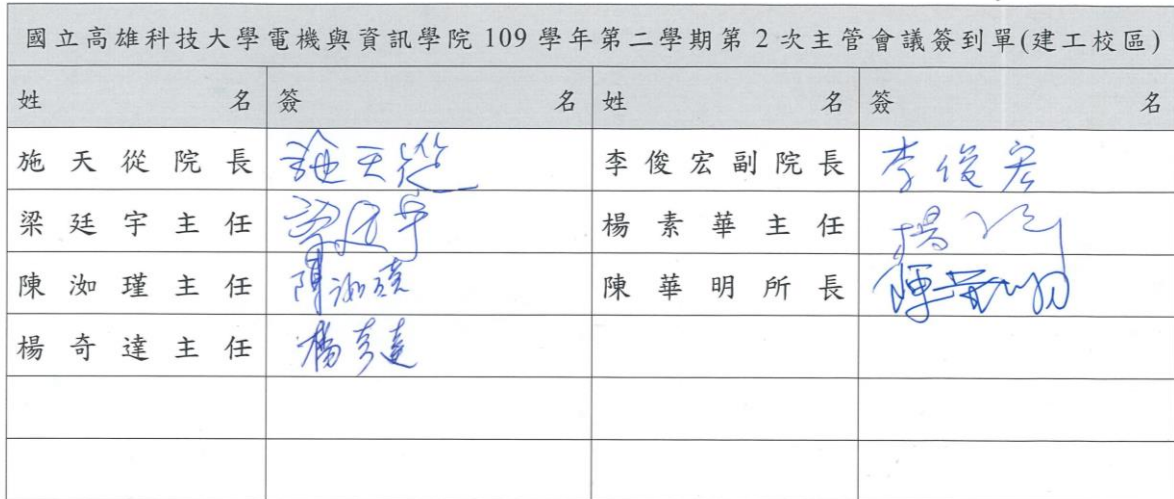 國立高雄科技大學電機與資訊學院 109 學年第二學期第 2 次主管會議簽到單(建工校區)
姓名 簽名 姓名 簽名
施天從院長 施天從 李俊宏副院長 李俊宏
梁廷宇主任 梁廷宇 楊素華主任 楊
陳洳瑾主任 陳洳瑾 陳華明所長 陳華明
楊奇達主任 楊奇達